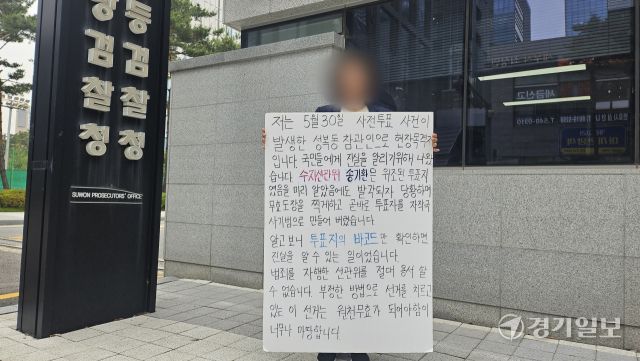 등검찰청
검찰청
SUWON PROSECUTORS' OFFICE
저는 5월 30일 사전투표 사건이
발생한 성복동 참관인으로 현장목격자
입니다. 국민들에게 진실을 알리기위하 나왔
습니다. 수지선관위 송기환은 위조된 투표지
였음을 미리 알았음에도 발각되자 당황하며
무효도장을 찍게하고 곧바로 투표자를 자작극
사기범으로 만들어 버렸습니다.
알고보니 투표지의 바코드만 확인하면
진실을 알 수 있는 일이었습니다.
범죄를 자행한 선관위를 절대 용서 할
수 없습니다. 부정한 방법으로 선거를 치르고
있는 이 선거는 원천무효가 되어야함이
너무나 마땅합니다.
세금신고
경기일보